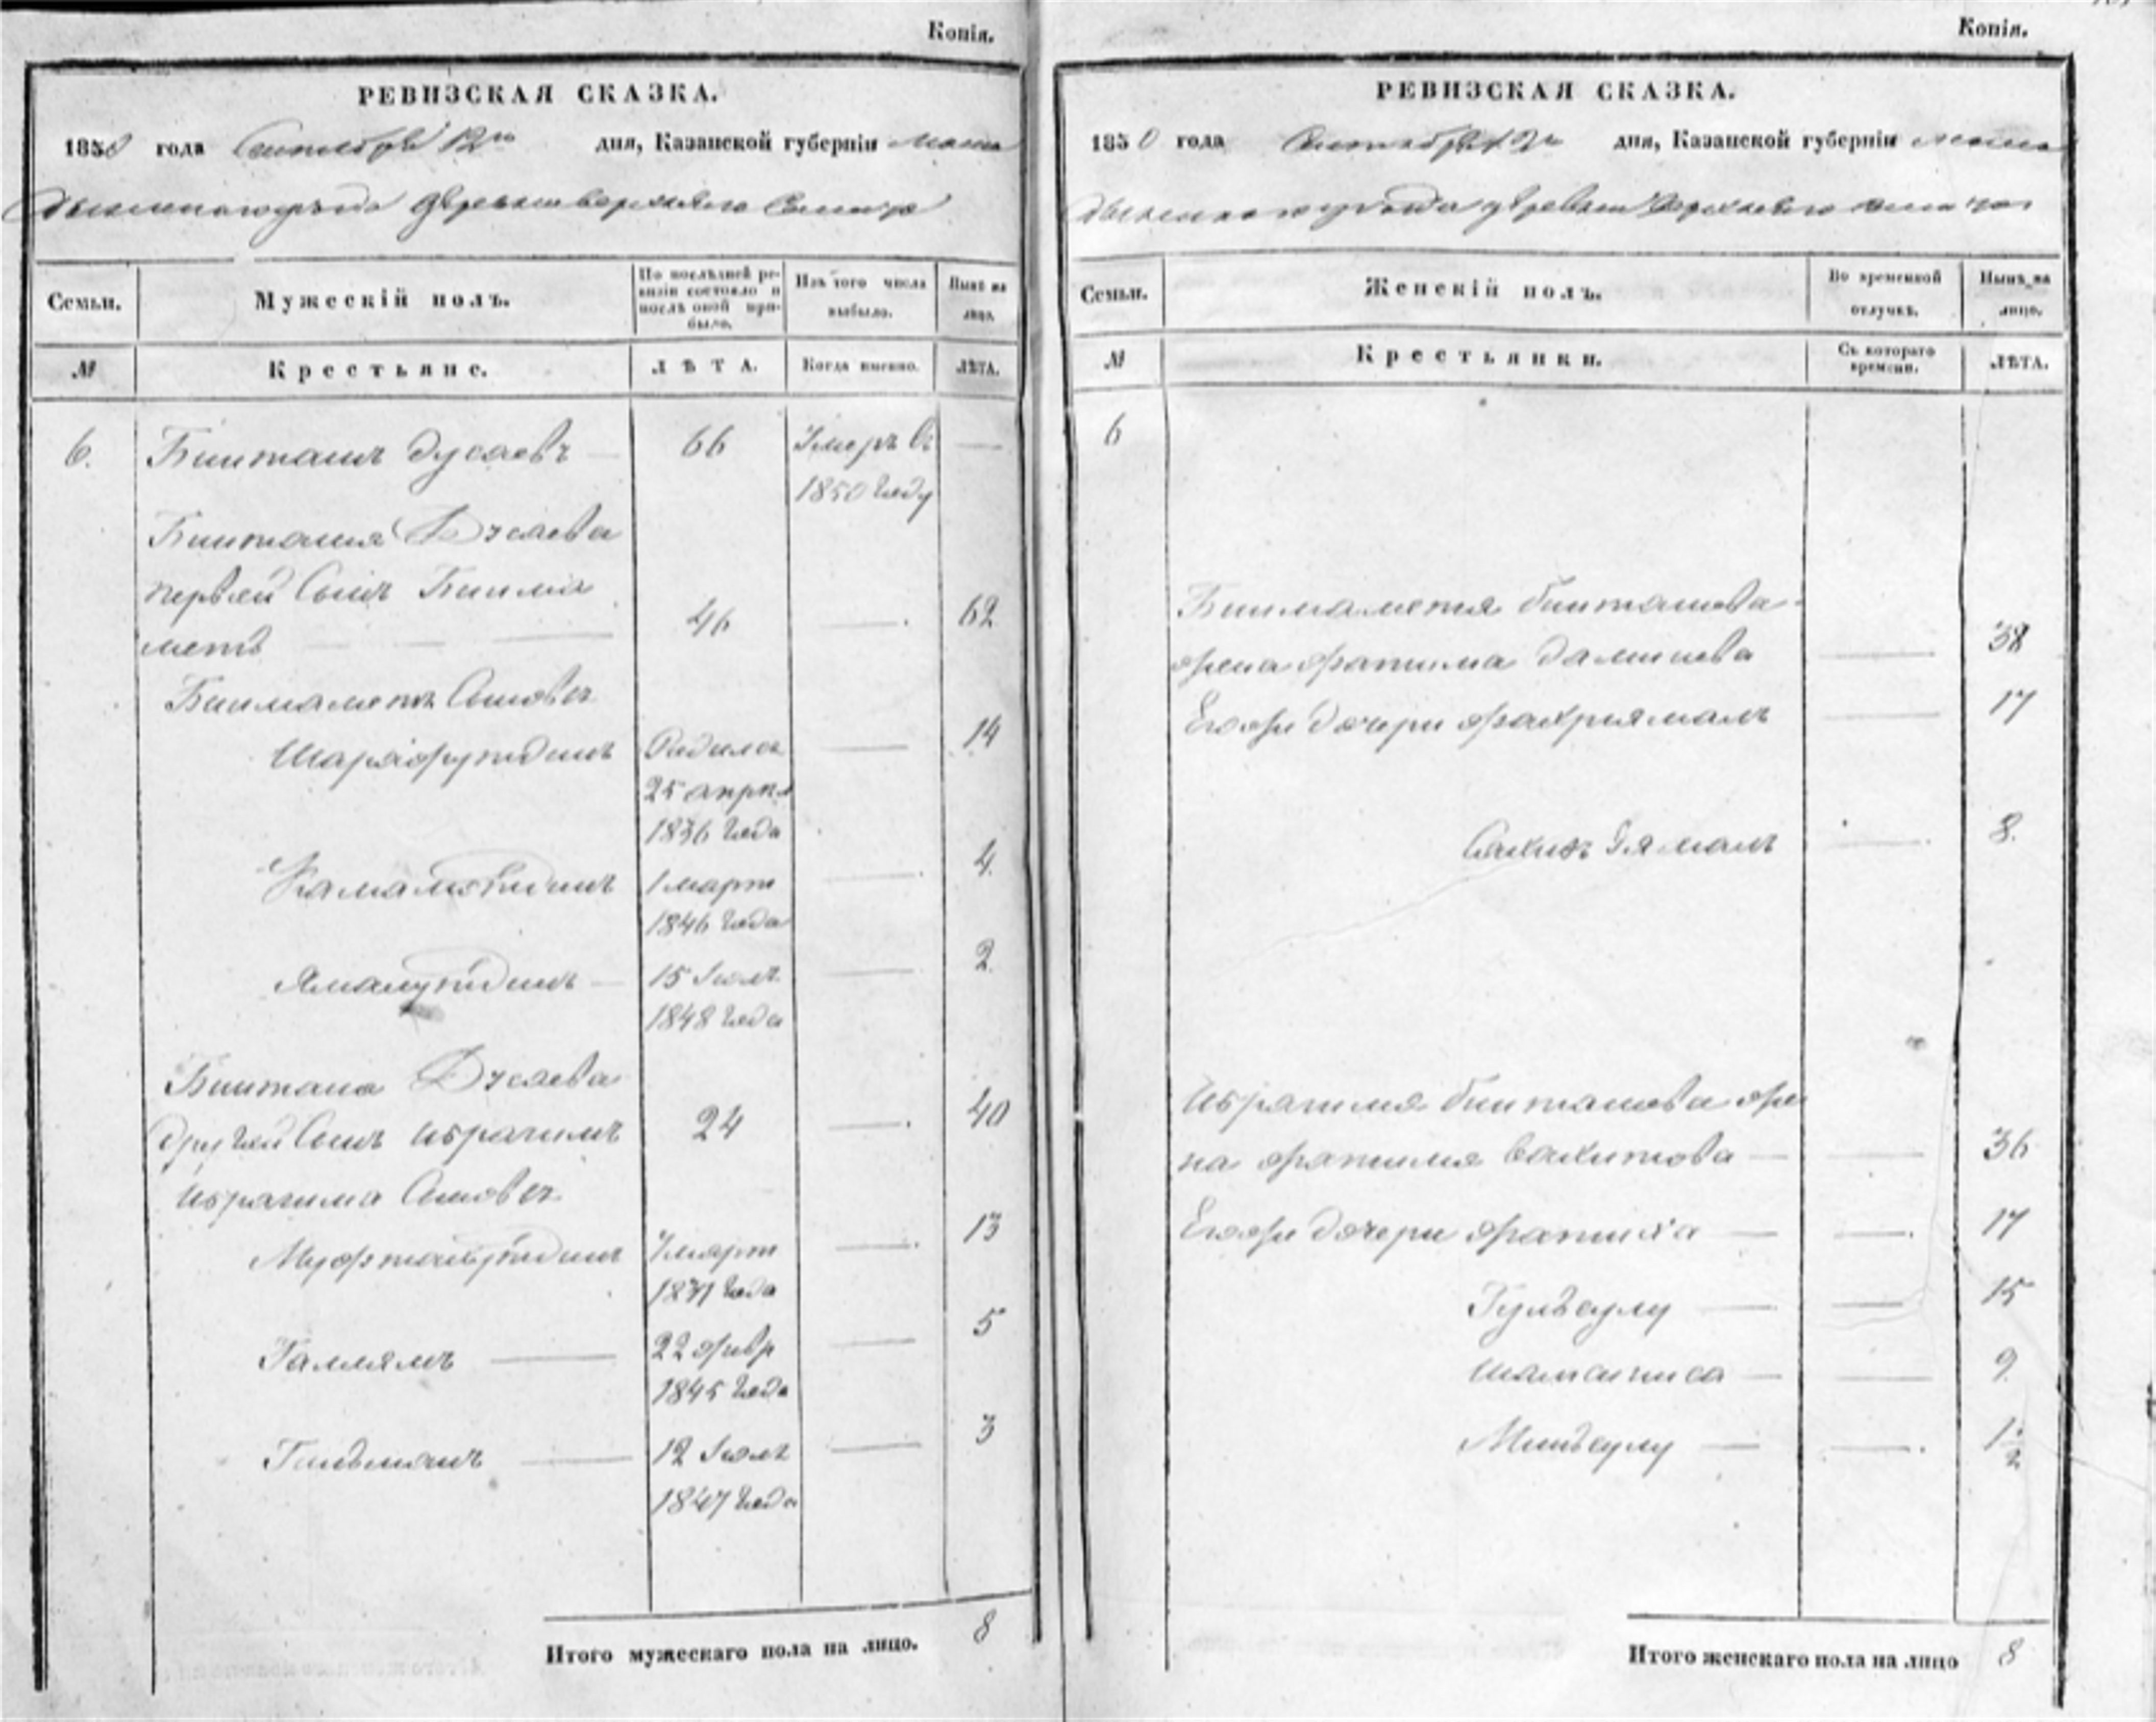 Копія.
РЕВИЗСКАЯ СКАЗКА.
1850 года Сентября 12го дня, Казанской губерніи Мама
дышскаго уѣзда деревни верхняго
Семьи. Мужескій полъ. По послѣдней ре-
визіи состояло и
послѣ оной при-
было. Изъ того числа
выбыло. Нынѣ на
лицо.
№ Крестьяне. ЛѢТА. Когда имено. ЛѢТА.
6. Бикташъ Дусаевъ 66 Умеръ въ —
1850 году
Бикташа Дусаева
первой сынъ Бикма
метъ 46 — 62
Бикмаметя Сыновья
Шарафутдинъ Родился — 14
25 апрѣл
1836 года
Камалетдинъ 1 март — 4.
1846 года
Ямалутдинъ 15 Іюля — 2.
1848 года
Бикташа Дусаева
другой Сынъ Ибрагимъ 24 — 40
Ибрагима Сыновья
Муфтахутдинъ март — 13
года
Галлямъ 22 февр — 5
1845 года
12 Іюля — 3
1847 года
Итого мужескаго пола на лицо. 8
Копія.
РЕВИЗСКАЯ СКАЗКА.
1850 года Сентября 12го дня, Казанской губерніи Мама
дышскаго уѣзда деревни Верхняго
Семьи. Женскій полъ. Во временной
отлучкѣ. Нынѣ на
лицо.
№ Крестьянки. Съ котораго
времени. ЛѢТА.
6
Бикмаметя бикташева
жена фатима — 38
Егожъ дочери фахриямалъ — 17
— 8.
Ибрагима бикташева же
на фатима Вахитова — 36
Егожъ дочери фатиха — 17
— 15
— 9
— 1 1/2
Итого женскаго пола на лицо 8